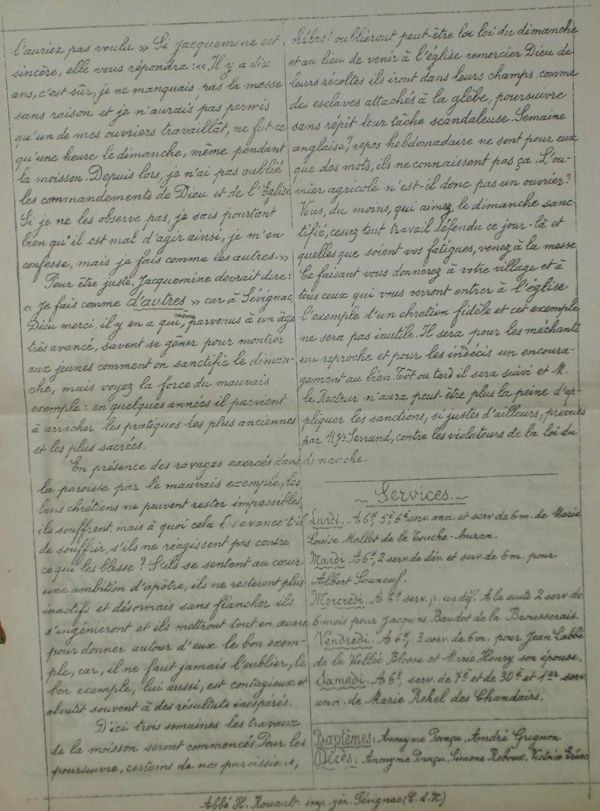 l'auriez pas voulu » Si Jacquemine est
sincère, elle vous répondra : « Il y a dix
ans, c'est sûr, je ne manquais pas la messe
sans raison et je n'aurais pas permis
qu'un de mes ouvriers travaillât, ne fut-ce
qu'une heure le dimanche, même pendant
la moisson. Depuis lors, je n'ai pas oublié
les commandements de Dieu et de l'Eglise
Si je ne les observe pas, je sais pourtant
bien qu'il est mal d'agir ainsi, je m'en
confesse, mais je fais comme les autres. »
Pour être juste, Jacquemine devrait dire :
« Je fais comme d'autres » car à Sévignac,
Dieu merci, il y en a qui, même parvenus à un âge
très avancé, savent se gêner pour montrer
aux jeunes comment on sanctifie le diman-
che, mais voyez la force du mauvais
exemple : en quelques années il parvient
à arracher les pratiques les plus anciennes
et les plus sacrées.
En présence des ravages exercés dans
la paroisse par le mauvais exemple, les
bons chrétiens ne peuvent rester impassibles,
ils souffrent, mais à quoi cela avance t-il
de souffrir, s'ils ne réagissent pas contre
ce qui les blesse ? S'ils se sentent au cœur
une ambition d'apôtre, ils ne resteront plus
inactifs et désormais sans flancher ils
s'ingénieront et ils mettront tout en œuvre
pour donner autour d'eux le bon exem-
ple, car, il ne faut jamais l'oublier, le
bon exemple, lui aussi, est contagieux et
aboutit souvent à des résultats inespérés.
D'ici trois semaines les travaux
de la moisson seront commencés. Pour les
poursuivre, certains de nos paroissiens,
hélas ! oublieront peut-être la loi du dimanche
et au lieu de venir à l'église remercier Dieu de
leurs récoltes ils iront dans leurs champs comme
des esclaves attachés à la glèbe, poursuivre
sans répit leur tâche scandaleuse. Semaine
anglaise, repos hebdomadaire ne sont pour eux
que des mots, ils ne connaissent pas ça. L'ou-
vrier agricole n'est-il donc pas un ouvrier ?
Vous, du moins, qui aimez le dimanche sanc-
tifié, cessez tout travail défendu ce jour-là et
quelles que soient vos fatigues, venez à la messe
Ce faisant vous donnerez à votre village et à
tous ceux qui vous verront entrer à l'église
l'exemple d'un chrétien fidèle et cet exemple
ne sera pas inutile. Il sera pour les méchants
un reproche et pour les indécis un encoura-
gement au bien. Tôt ou tard il sera suivi et M.
le Recteur n'aura peut être plus la peine d'ap-
pliquer les sanctions, si justes d'ailleurs, prévues
par Mgr Serrand, contre les violateurs de la loi du
dimanche.
Services
Lundi. A 6h, 5e, 6e serv. ann. et serv de 6 m. de Marie
Louise Mallot de la Touche-
Mardi A 6h, 2 serv. de dév. et serv. de 6 m. pour
Albert
Mercredi. A 6h serv. p. un déf. A la suite 2 serv de
6 mois pour Jacques Baudot de la Brousserais.
Vendredi. A 6h, 3 serv. de 6 m. pour Jean Labbé
de la Vallée Blosse et Marie Henry son épouse.
Samedi. A 6h, serv. de 7e et de 30e et 1er serv
ann. de Marie Rehel des Chandairs.
Baptêmes : Anonyme Poinçu, André Grignon
Décès : Anonyme Poinçu, Simone Reboux, Victoire
Abbé H. Rouault imp. gér. Sévignac (C. d. N)